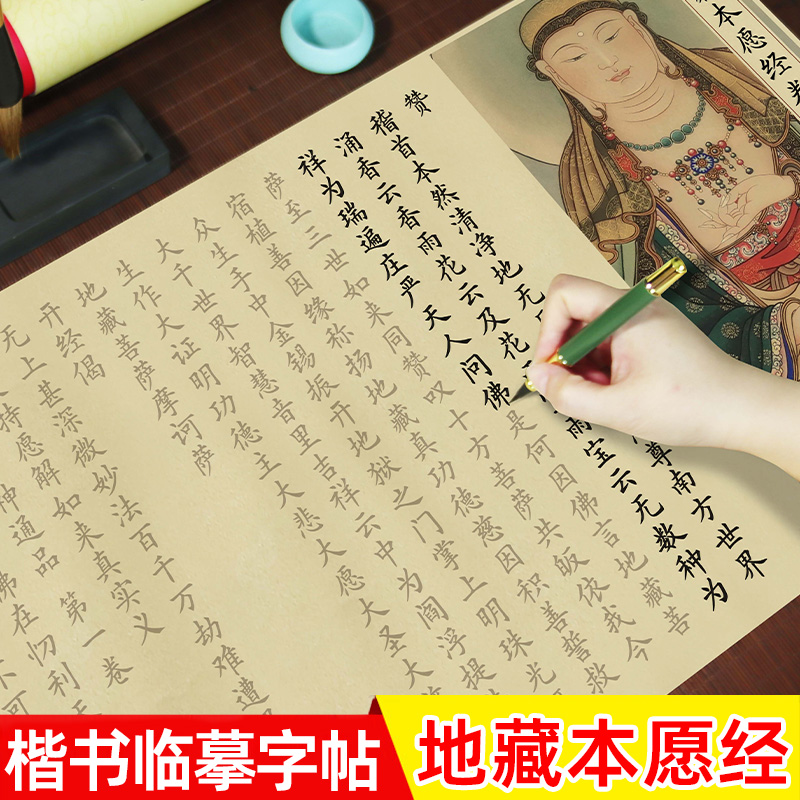 本愿经
赞
稽首本然清净地无
尊南方世界
涌香云香雨花云及花
雨宝云无数种为
祥为瑞遍庄严天人问佛是何因佛言地藏菩
萨至三世如来同赞叹十方菩萨共皈依我今
宿植善因缘称扬地藏真功德慈因积善誓救
众生手中金锡振开地狱之门掌上明珠光
大千世界智慧音里吉祥云中为阎浮提
生作大证明功德主大悲大愿大圣大
地藏菩萨摩诃萨
开经偈
无上甚深微妙法百千万劫难遭
持愿解如来真实义
神通品第一卷
佛在忉利
楷书临摹字帖
地藏本愿经